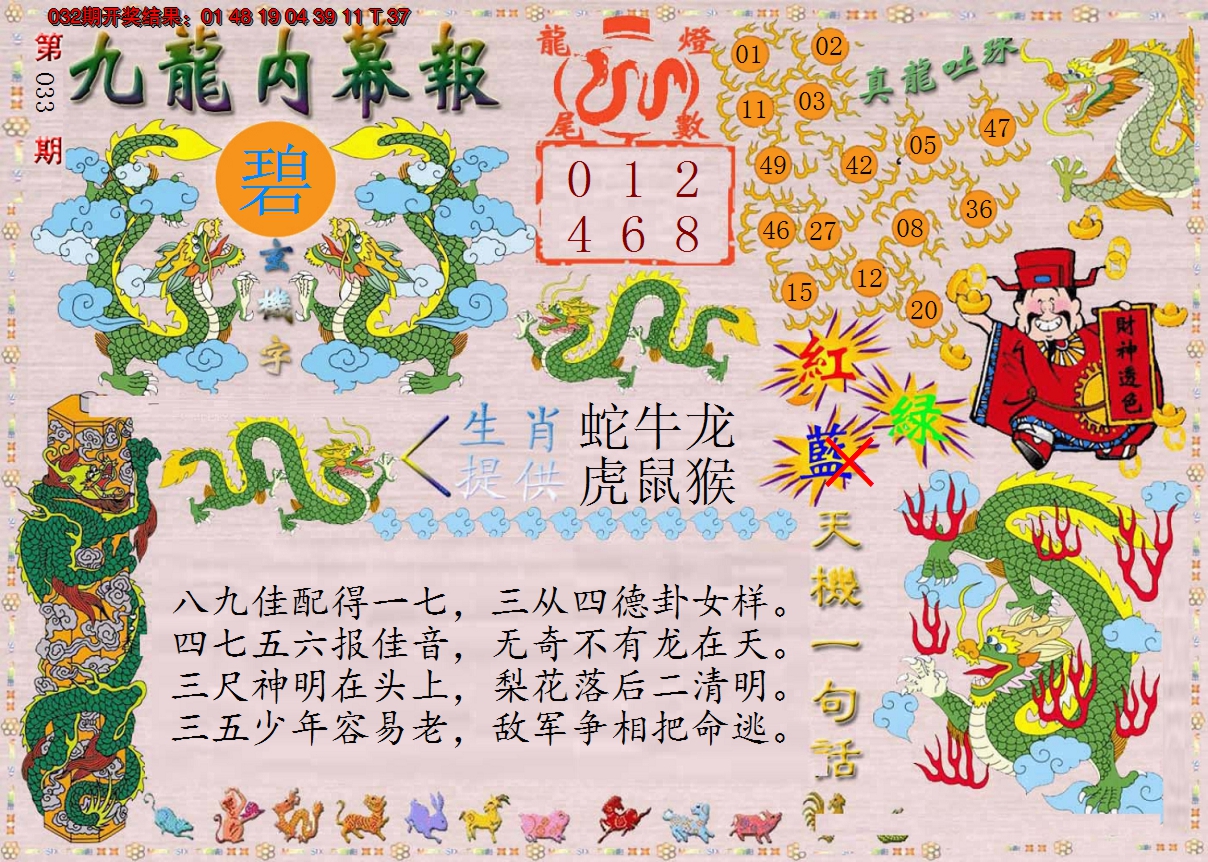 032期开奖结果：01 48 19 04 39 11 T 37
第033期
九龍内幕報
碧
玄機字
龍燈
尾數
0 1 2
4 6 8
真龍吐珠
01 02
11 03
49 42 05 47
46 27 08 36
15 12 20
紅
綠
藍
財神透色
生肖
提供
蛇牛龙
虎鼠猴
八九佳配得一七，三从四德卦女样。
四七五六报佳音，无奇不有龙在天。
三尺神明在头上，梨花落后二清明。
三五少年容易老，敌军争相把命逃。
天機一句话